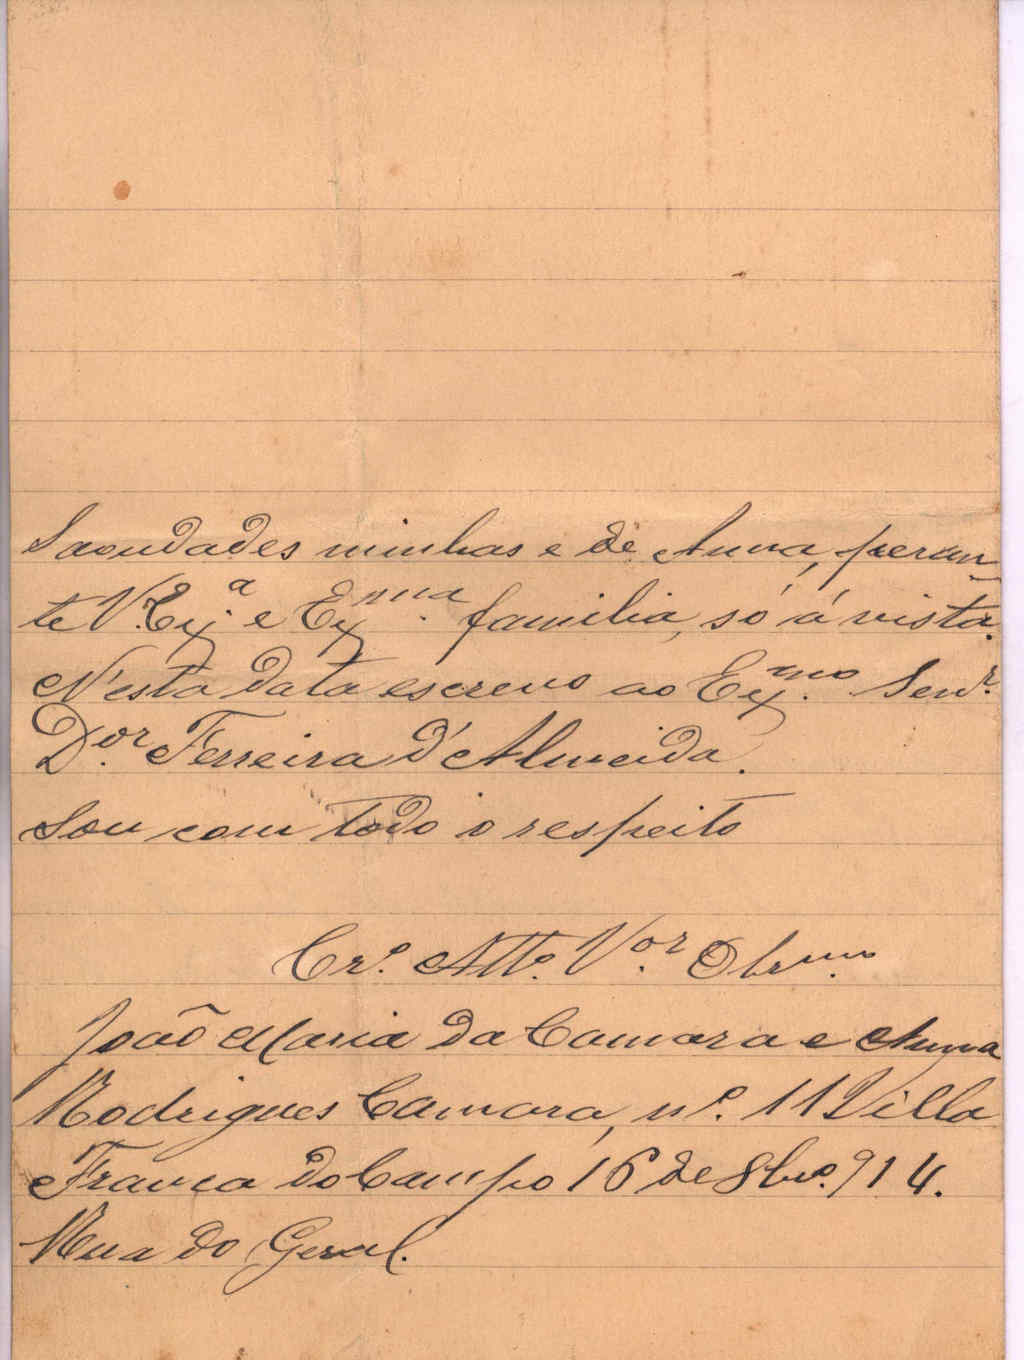 Saoudades minhas e de Anna, peran-
te V. Exª e Exma. familia, só á vista.
N'esta data escrevo ao Exmo. Senr.
Dor. Ferreira d'Almeida.
Sou com todo o respeito
Cr.º Att.º V.or Obrmo.
João Maria da Camara e Anna
Rodrigues Camara, nº. 11 Villa
Franca do Campo 16 de 8bro. 914.
Rua do Geral.